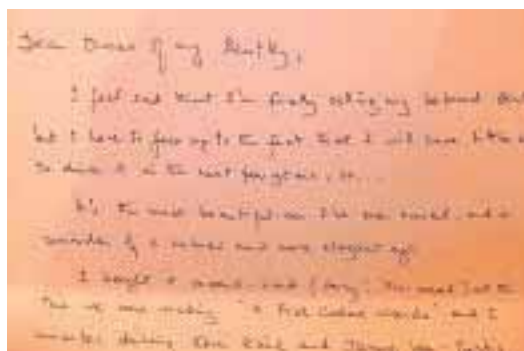 Dear Owner of my Bentley,
I feel sad that I'm finally selling my beloved
but I have to face up to the fact that I will have little
to drive it in the next few years, so...
It's the most beautiful car I've ever owned, and a
reminder of a and more elegant age.
I bought it second-hand (sorry! "Pre-owned") at the
time we were making "A Fish Called Wanda" and I
remember driving Kevin Kline and Jamie Lee Curtis